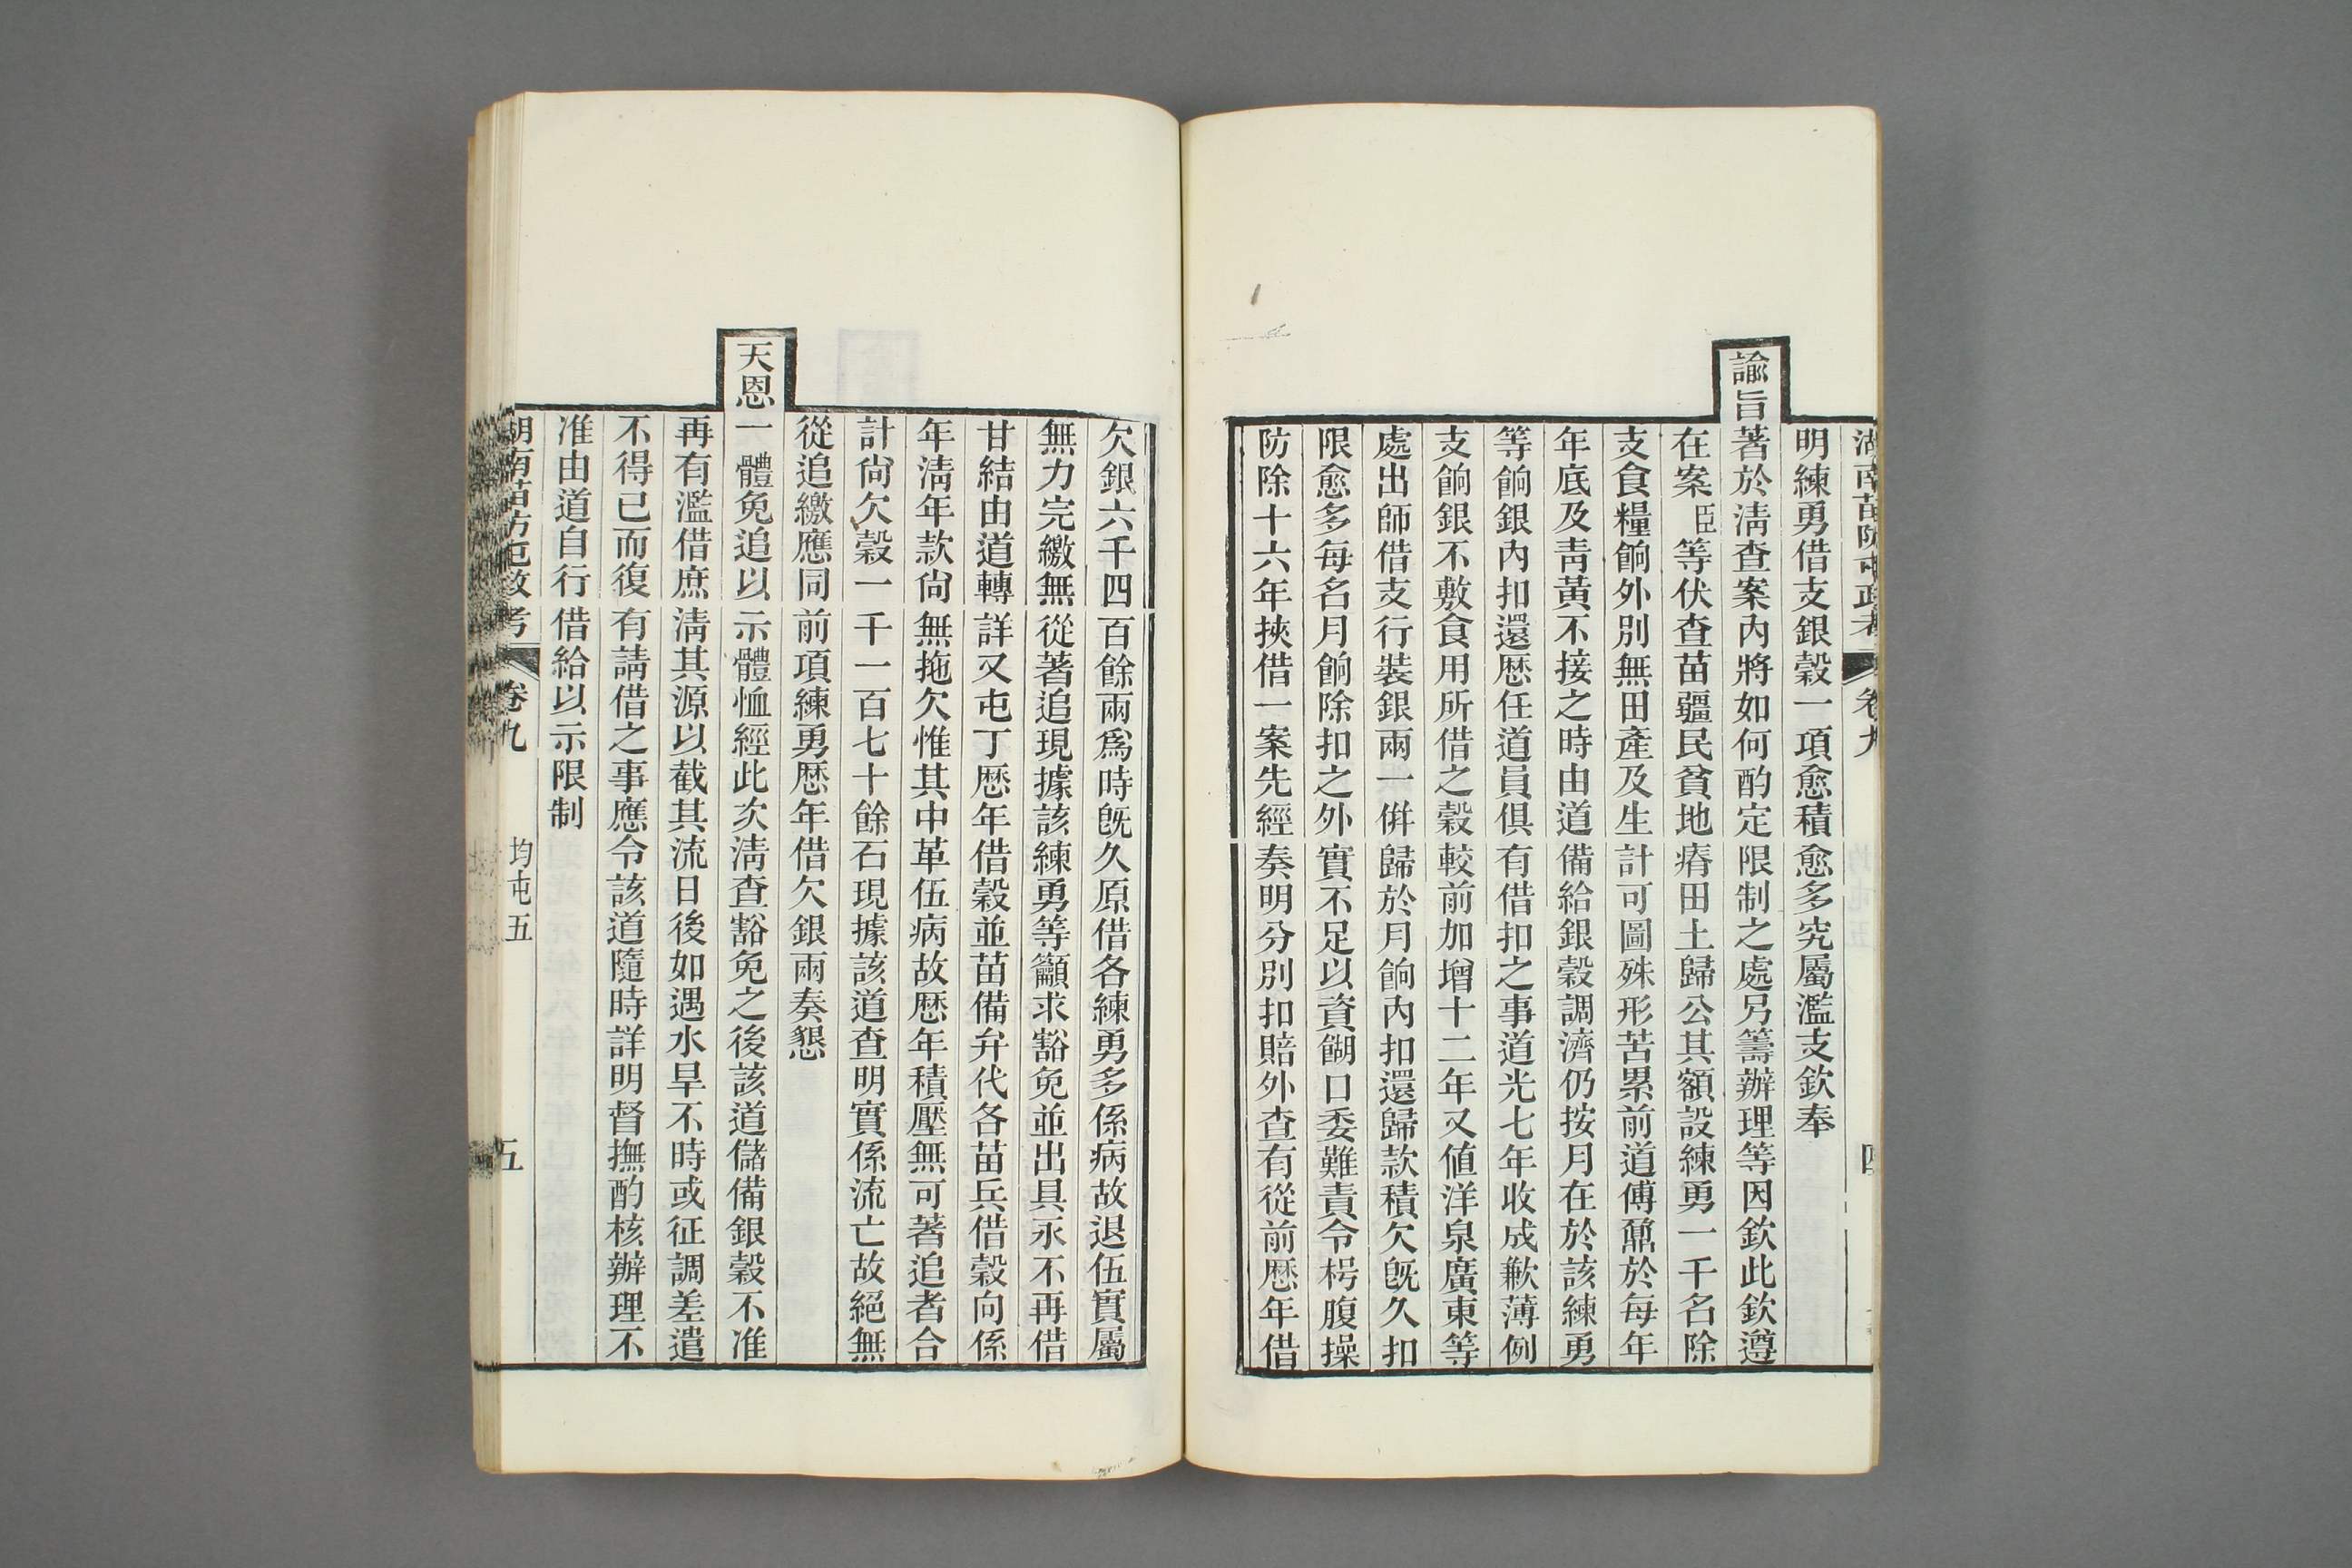 湖南苗防屯政考 卷九 四
明練勇借支銀穀一項愈積愈多究屬濫支欽奉
諭旨著於淸查案內將如何酌定限制之處另籌辦理等因欽此欽遵
在案臣等伏查苗疆民貧地瘠田土歸公其額設練勇一千名除
支食糧餉外別無田產及生計可圖殊形苦累前道傅鼐於每年
年底及靑黃不接之時由道備給銀穀調濟仍按月在於該練勇
等餉銀內扣還歷任道員俱有借扣之事道光七年收成歉薄例
支餉銀不敷食用所借之穀較前加增十二年又値洋泉廣東等
處出師借支行裝銀兩一倂歸於月餉內扣還歸款積欠旣久扣
限愈多每名月餉除扣之外實不足以資餬口委難責令枵腹操
防除十六年挾借一案先經奏明分別扣賠外查有從前歷年借
欠銀六千四百餘兩爲時旣久原借各練勇多係病故退伍實屬
無力完繳無從著追現據該練勇等籲求豁免並出具永不再借
甘結由道轉詳又屯丁歷年借穀並苗備弁代各苗兵借穀向係
年淸年款尙無拖欠惟其中革伍病故歷年積壓無可著追者合
計尙欠穀一千一百七十餘石現據該道查明實係流亡故絕無
從追繳應同前項練勇歷年借欠銀兩奏懇
天恩一體免追以示體恤經此次淸查豁免之後該道儲備銀穀不准
再有濫借庶淸其源以截其流日後如遇水旱不時或征調差遣
不得已而復有請借之事應令該道隨時詳明督撫酌核辦理不
准由道自行借給以示限制
湖南苗防屯政考 卷九 均屯五 五